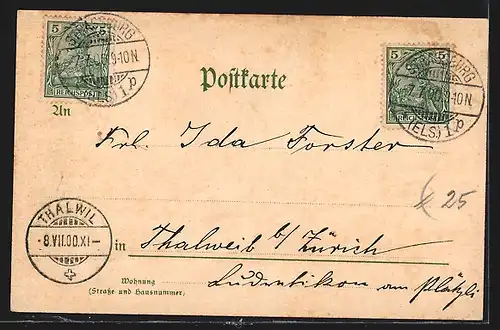 5 5
REICHSPOST
STRASSBURG
9-10N.
(ELS.) 1.p
5 5
REICHSPOST
STRASSBURG
7.7.00 9-10N.
(ELS.) 1.p
Postkarte
An
Frl. Ida Forster
€ 25
THALWIL
-8.VII.00.XI-
in Thalweib b/ Zürich
Wohnung
(Straße und Hausnummer)
Ludretikon am Plätzli